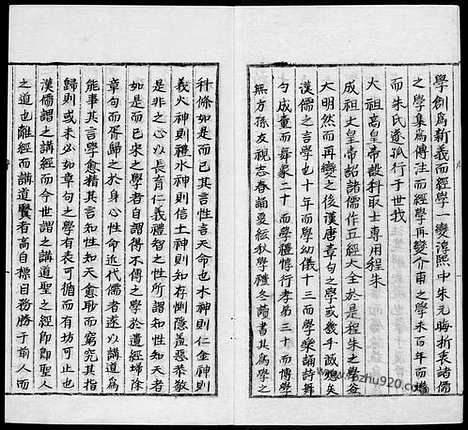 學創為新義而經學一變淳熙中朱元晦折衷諸儒
之學集為傳注而經學再變介甫之學未百年而熸
而朱氏遂孤行于世我
太祖高皇帝設科取士專用程朱
成祖文皇帝詔諸儒作五經大全於是程朱之學益
大明然而再變之後漢唐章句之學或幾乎滅熄矣
漢儒之言學也十年而學幼儀十三而學樂誦詩舞
勺成童而舞象二十而學禮惇行孝弟三十而博學
無方孫友視志春誦夏弦秋學禮冬讀書其為學之
科條如是而已其言性言天命也木神則仁金神則
義火神則禮水神則信土神則知存惻隱羞惡恭敬
是非之心以長育仁義禮智之性所謂知性知天者
如是而已宋之學者自謂得不傳之學於遺經掃除
章句而胥歸之於身心性命近代儒者遂以講道為
能事其言學愈精其言知性知天愈眇而窮究其指
歸則或未必如章句之學有表可循而有坊可止也
漢儒謂之講經而今世謂之講道聖人之經即聖人
之道也離經而講道賢者高自標目務勝于前人而